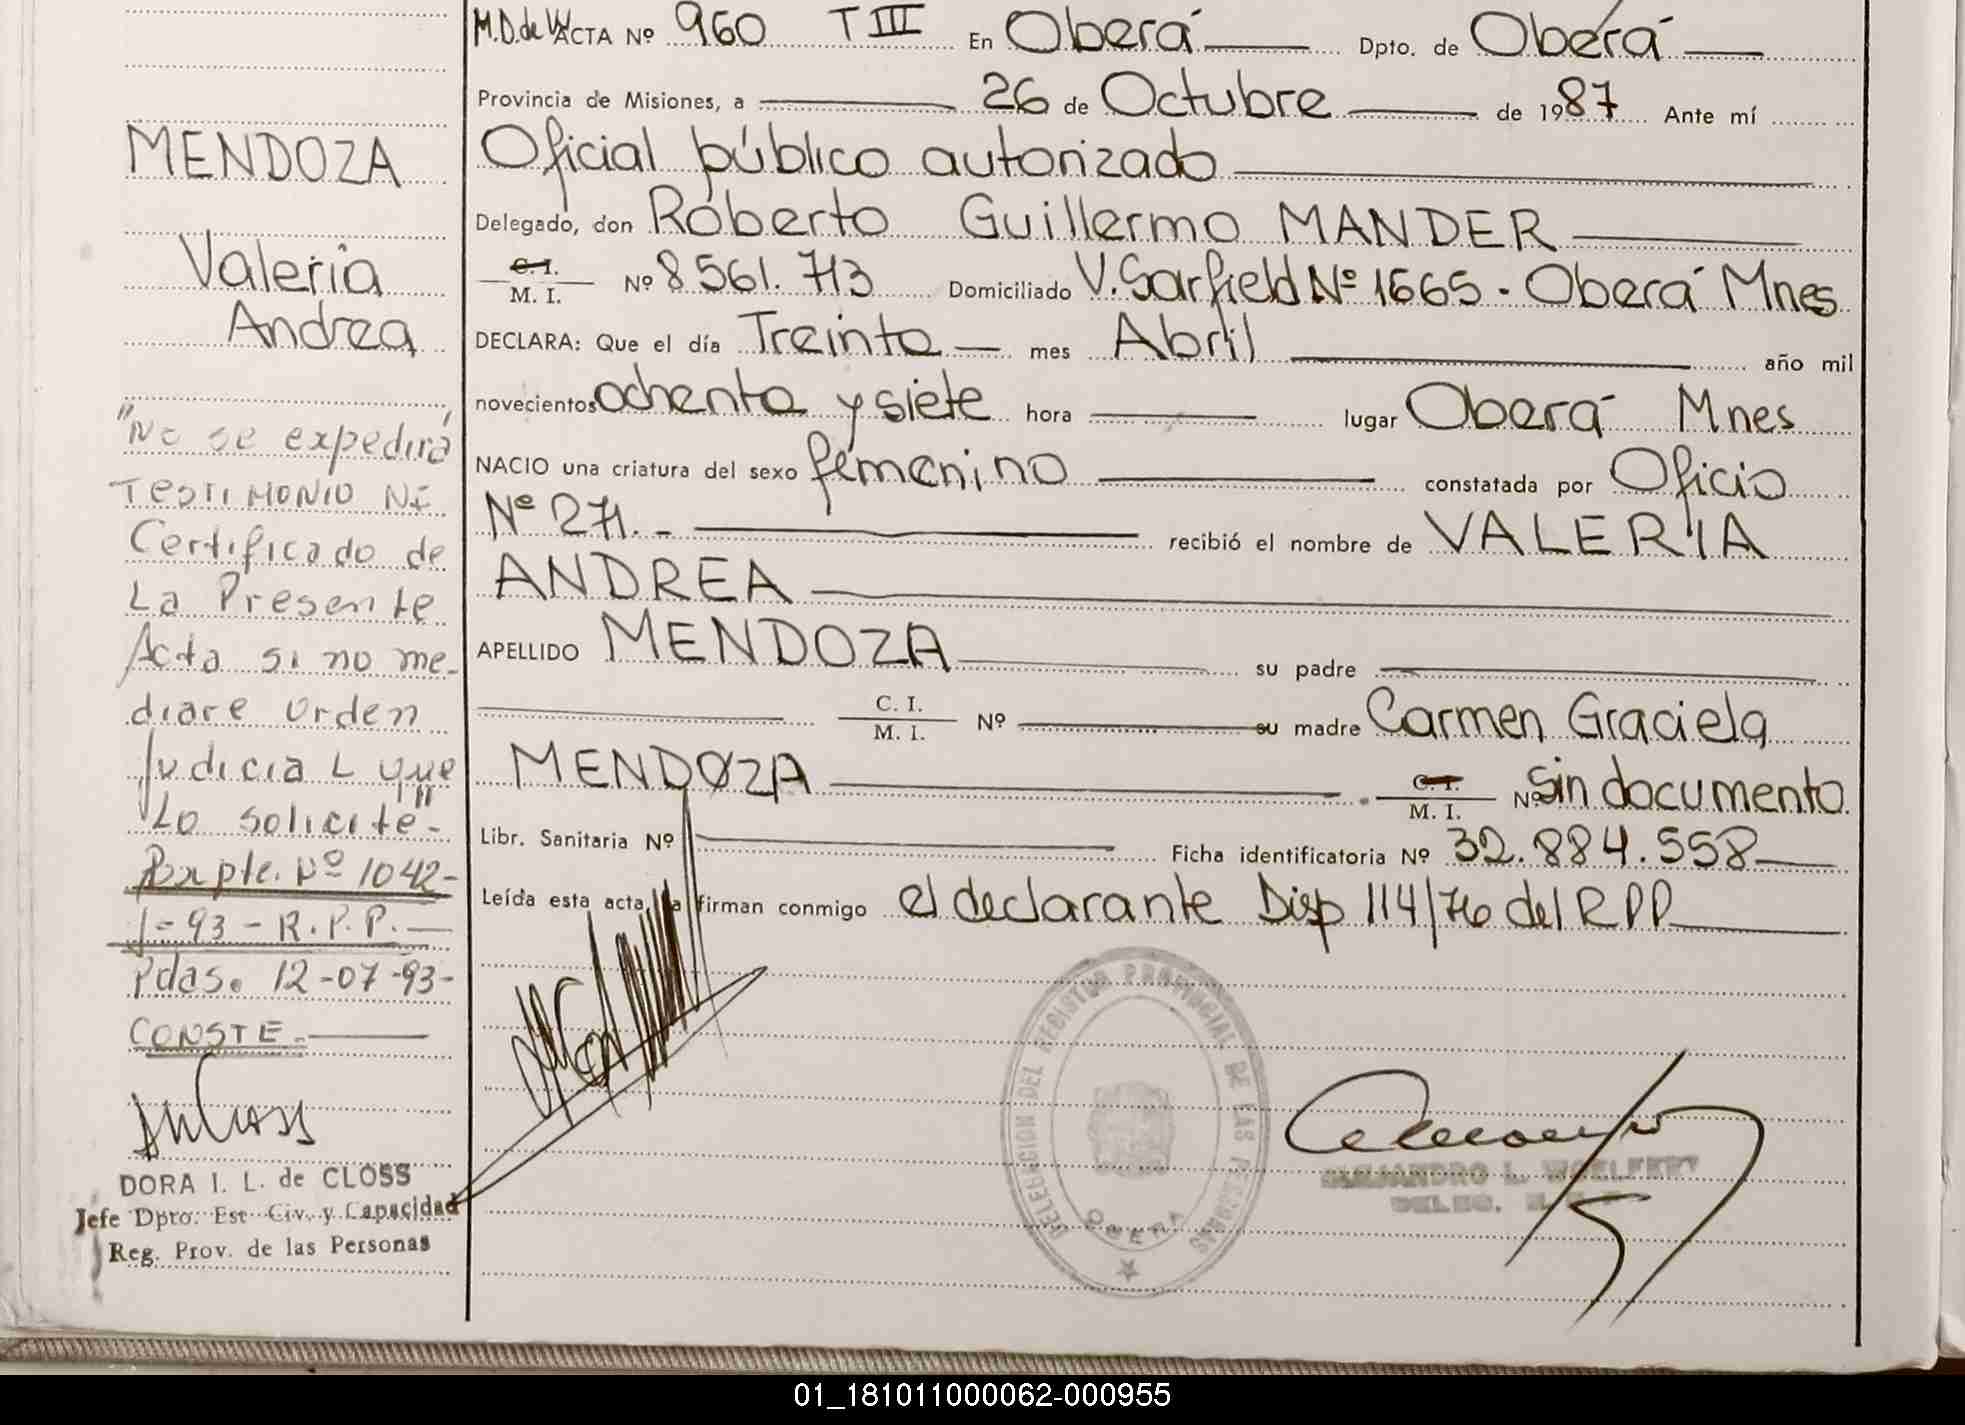 MENDOZA
Valeria
Andrea
"No se expedirá
Testimonio Ni
Certificado de
La Presente
Acta si no me-
diare orden
Judicial que
Lo solicite"-
Expte. Nº 1042-
J-93-R.P.P.-
Pdas. 12-07-93-
CONSTE.-
DORA I. L. de CLOSS
Jefe Dpto. Est. Civ. y Capacidad
Reg. Prov. de las Personas
ACTA Nº 960 T III En Oberá Dpto. de Oberá
Provincia de Misiones, a 26 de Octubre de 1987 Ante mí
Oficial público autorizado
Delegado, don Roberto Guillermo MANDER
C. I.
M. I. Nº 8561.713 Domiciliado V. Sarfield Nº 1665. Oberá Mnes
DECLARA: Que el día Treinta mes Abril año mil
novecientos ochenta y siete hora lugar Oberá Mnes
NACIO una criatura del sexo femenino constatada por Oficio
Nº 271.- recibió el nombre de VALERIA
ANDREA
APELLIDO MENDOZA su padre
C. I.
M. I. Nº su madre Carmen Graciela
MENDOZA C. I.
M. I. Nº Sin documento
Libr. Sanitaria Nº Ficha identificatoria Nº 32.884.558
Leída esta acta, la firman conmigo el declarante Disp 114/76 del RPP
DELEGACION DEL REGISTRO PROVINCIAL DE LAS PERSONAS
OBERA
ALEJANDRO L. WOELFERT
DELEG.
01_181011000062-000955